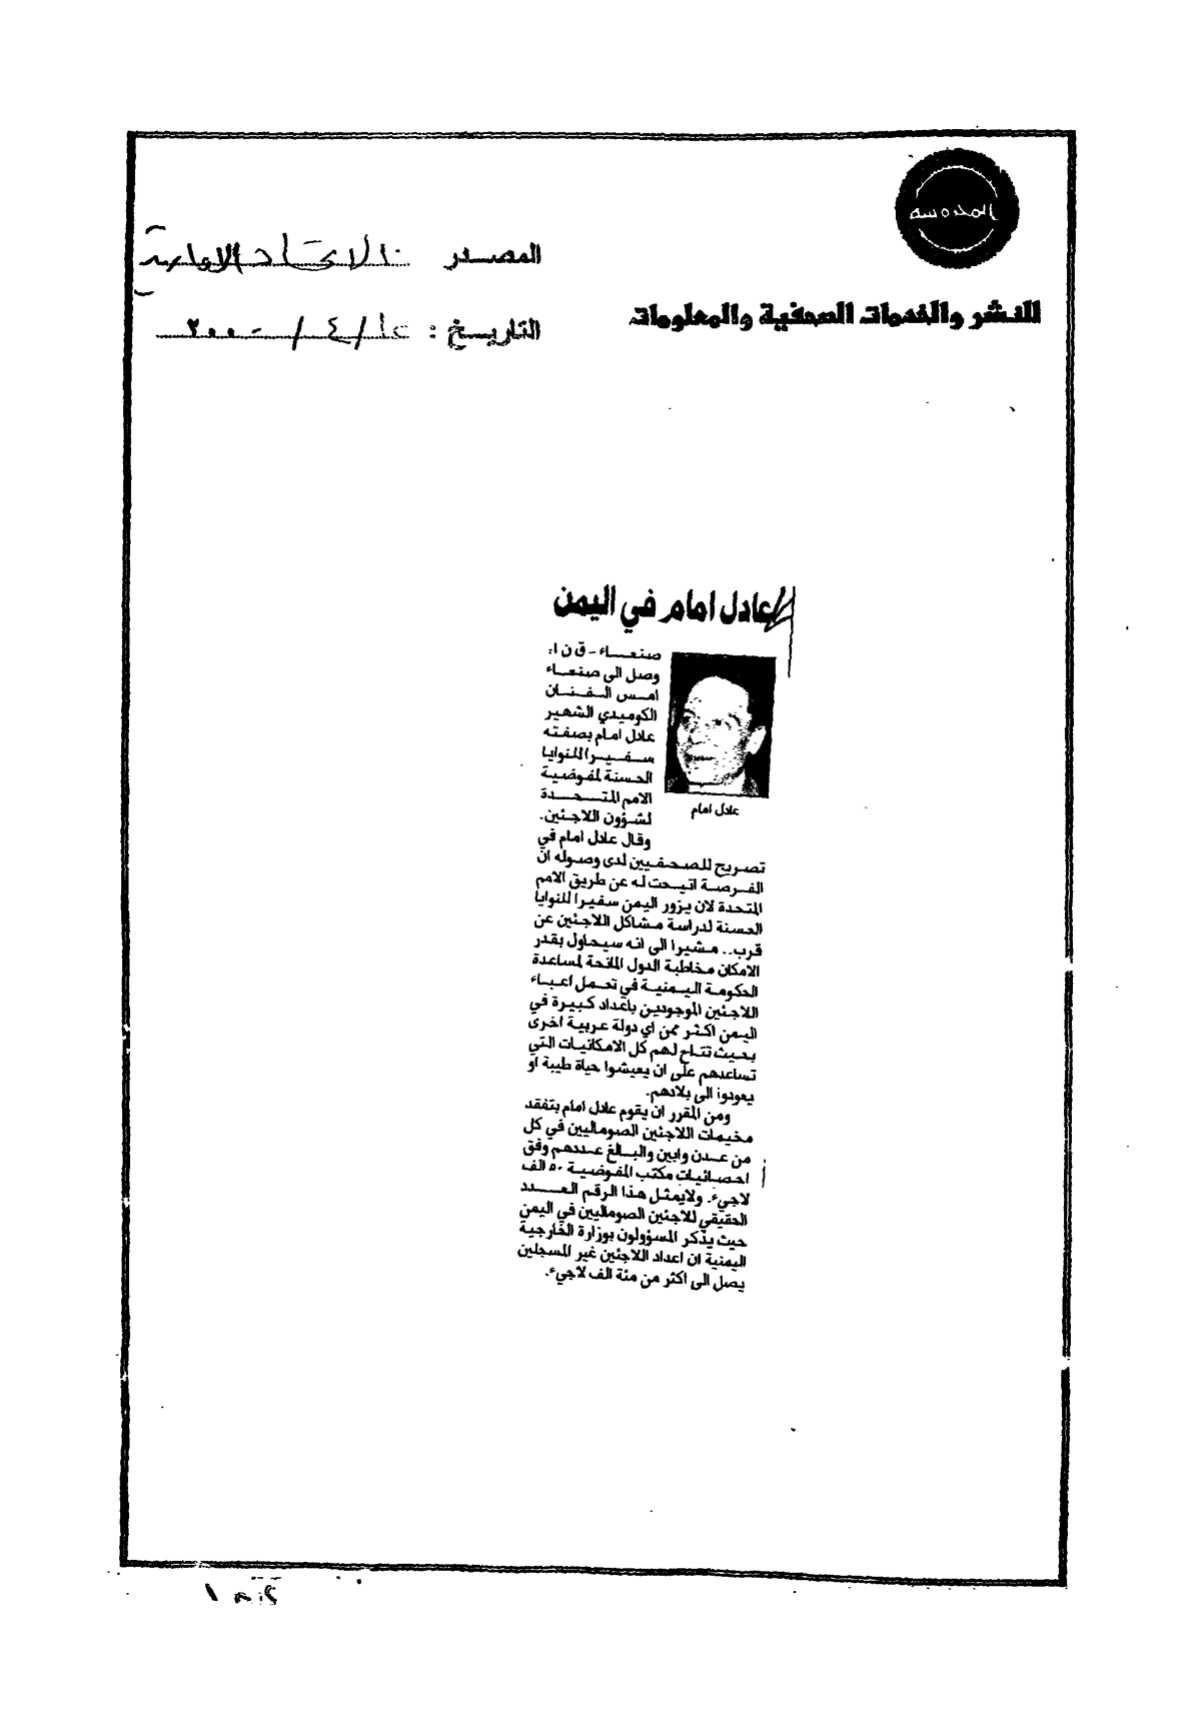 المحروسة
للنشر والخدمات الصحفية والمعلومات
المصدر : الاتحاد الاماراتية
التاريخ : / ٤ / ٢٠٠٠
عادل امام في اليمن
صنعاء - ق ن ا:
وصل الى صنعاء
امس الفنان
الكوميدي الشهير
عادل امام بصفته
سفيرا للنوايا
الحسنة لمفوضية
الامم المتحدة
لشؤون اللاجئين.
وقال عادل امام في
عادل امام
تصريح للصحفيين لدى وصوله ان
الفرصة اتيحت له عن طريق الامم
المتحدة لان يزور اليمن سفيرا للنوايا
الحسنة لدراسة مشاكل اللاجئين عن
قرب.. مشيرا الى انه سيحاول بقدر
الامكان مخاطبة الدول المانحة لمساعدة
الحكومة اليمنية في تحمل اعباء
اللاجئين الموجودين باعداد كبيرة في
اليمن اكثر من اي دولة عربية اخرى
بحيث تتاح لهم كل الامكانيات التي
تساعدهم على ان يعيشوا حياة طيبة او
يعودوا الى بلادهم.
ومن المقرر ان يقوم عادل امام بتفقد
مخيمات اللاجئين الصوماليين في كل
من عدن وابين والبالغ عددهم وفق
احصائيات مكتب المفوضية ٥٠ الف
لاجيء. ولايمثل هذا الرقم العدد
الحقيقي للاجئين الصوماليين في اليمن
حيث يذكر المسؤولون بوزارة الخارجية
اليمنية ان اعداد اللاجئين غير المسجلين
يصل الى اكثر من مئة الف لاجيء.